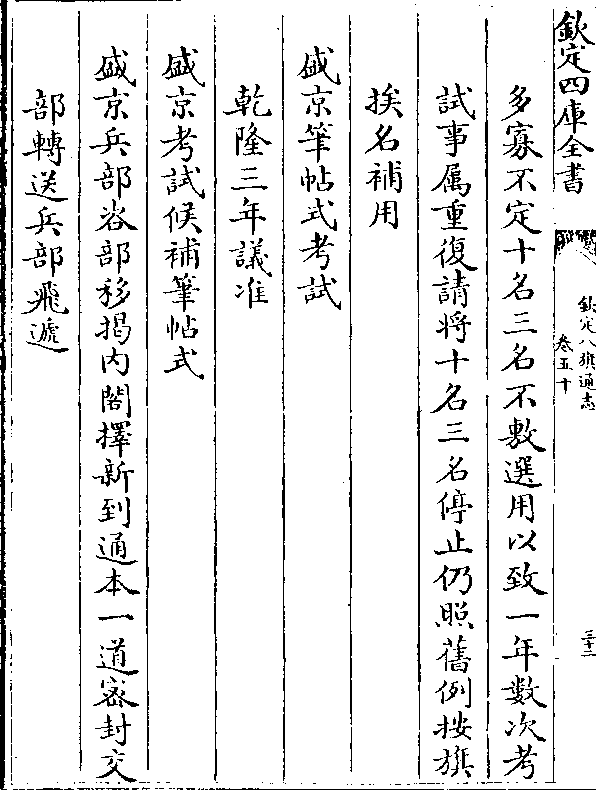 欽定四庫全書
欽定八旗通志
卷五十
三十二
多寡不定十名三名不敷選用以致一年數次考
試事属重復請將十名三名停止仍照舊例按旗
挨名補用
盛京筆帖式考試
乾隆三年議准
盛京考試候補筆帖式
盛京兵部咨部移揭内閣擇新到通本一道宻封交
部轉送兵部飛遞